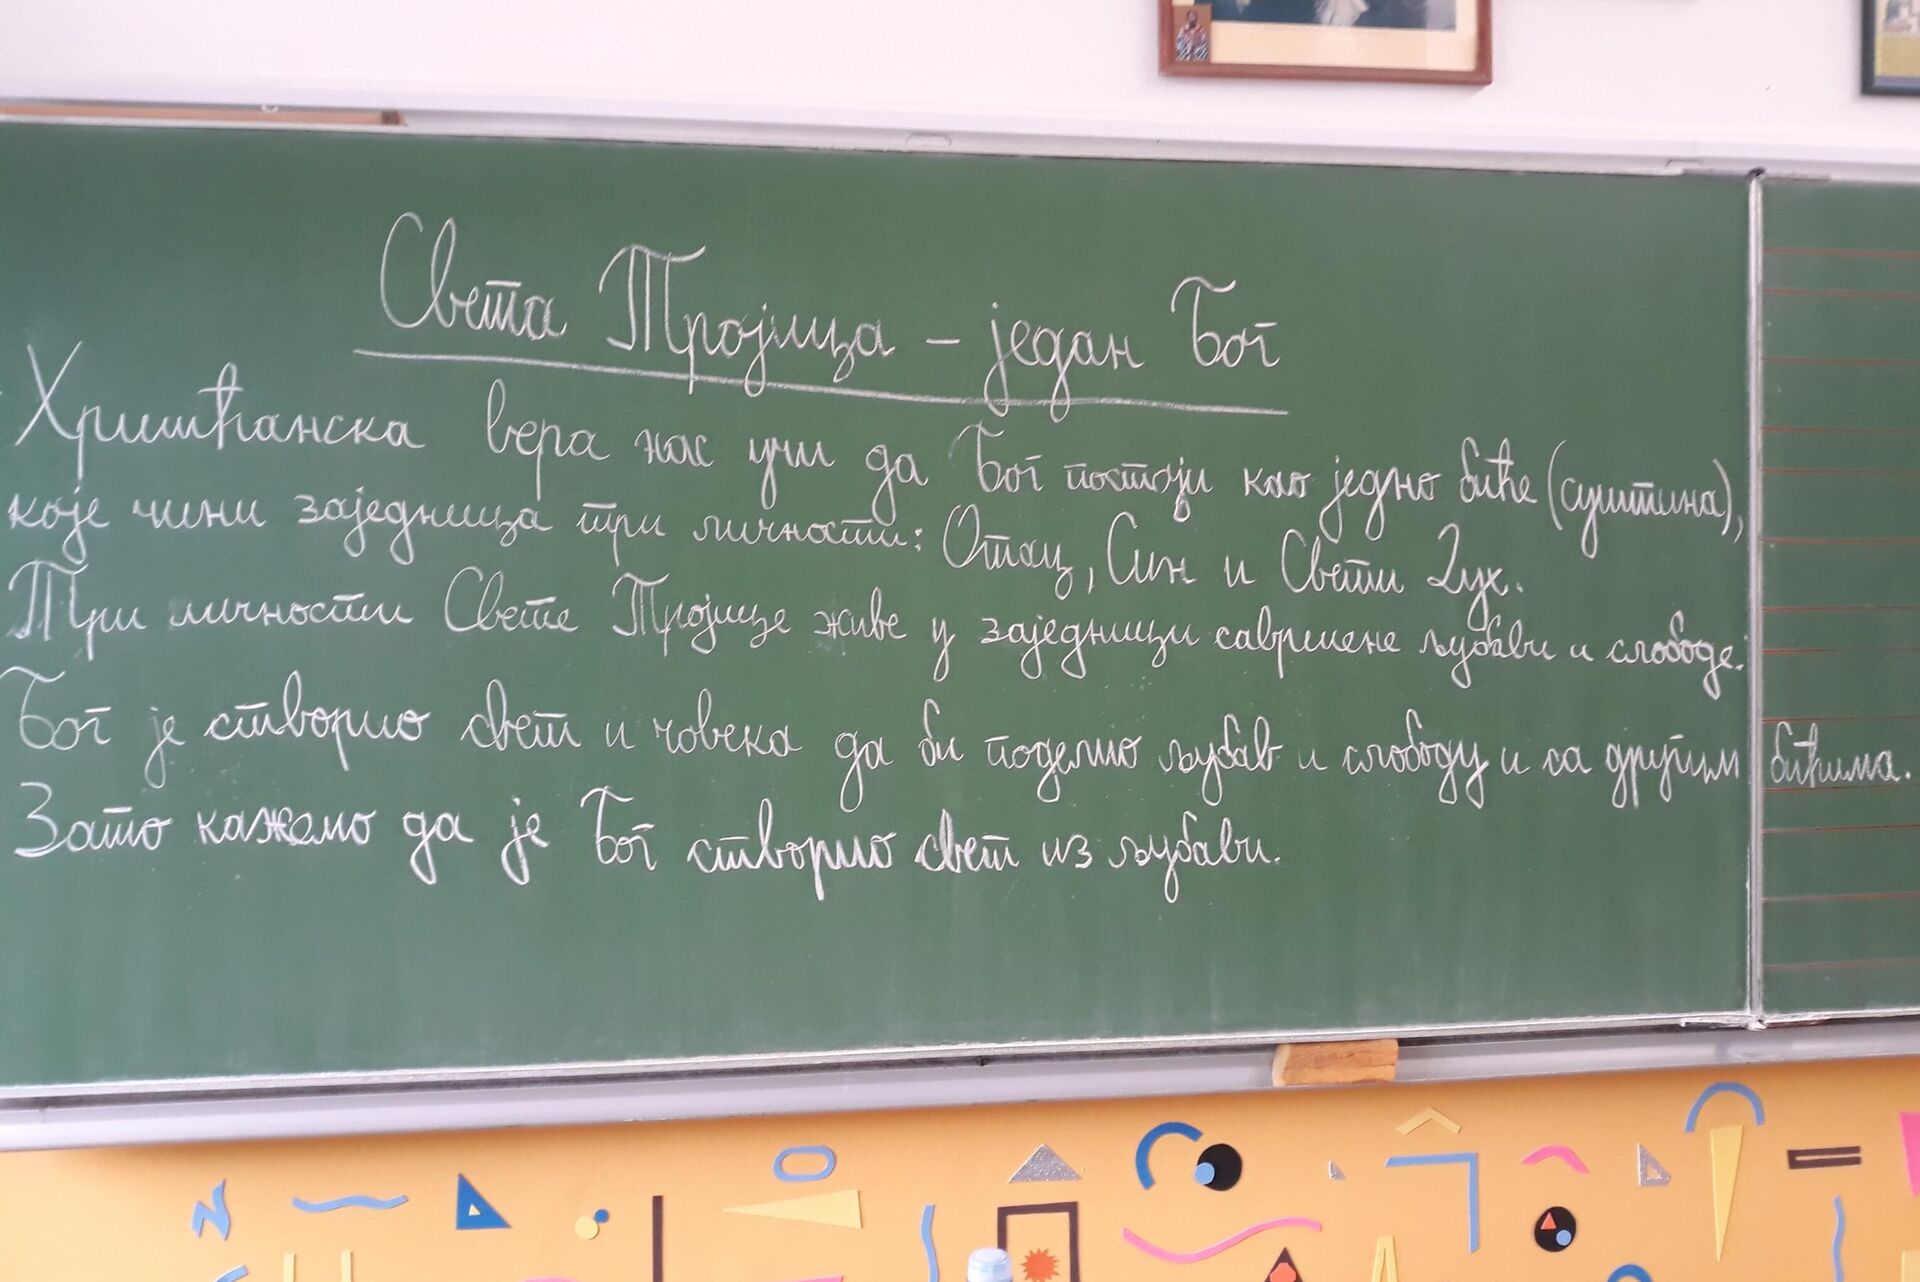 Света Тројица – један Бог
Хришћанска вера нас учи да Бог постоји као једно биће (суштина),
које чини заједница три личности: Отац, Син и Свети Дух.
Три личности Свете Тројице живе у заједници савршене љубави и слободе.
Бог је створио свет и човека да би поделио љубав и слободу и са другим бићима.
Зато кажемо да је Бог створио свет из љубави.